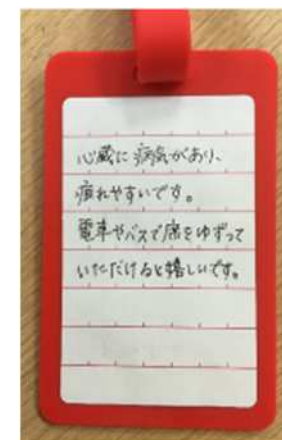 心臓に病気があり、
疲れやすいです。
電車やバスで席をゆずって
いただけると嬉しいです。